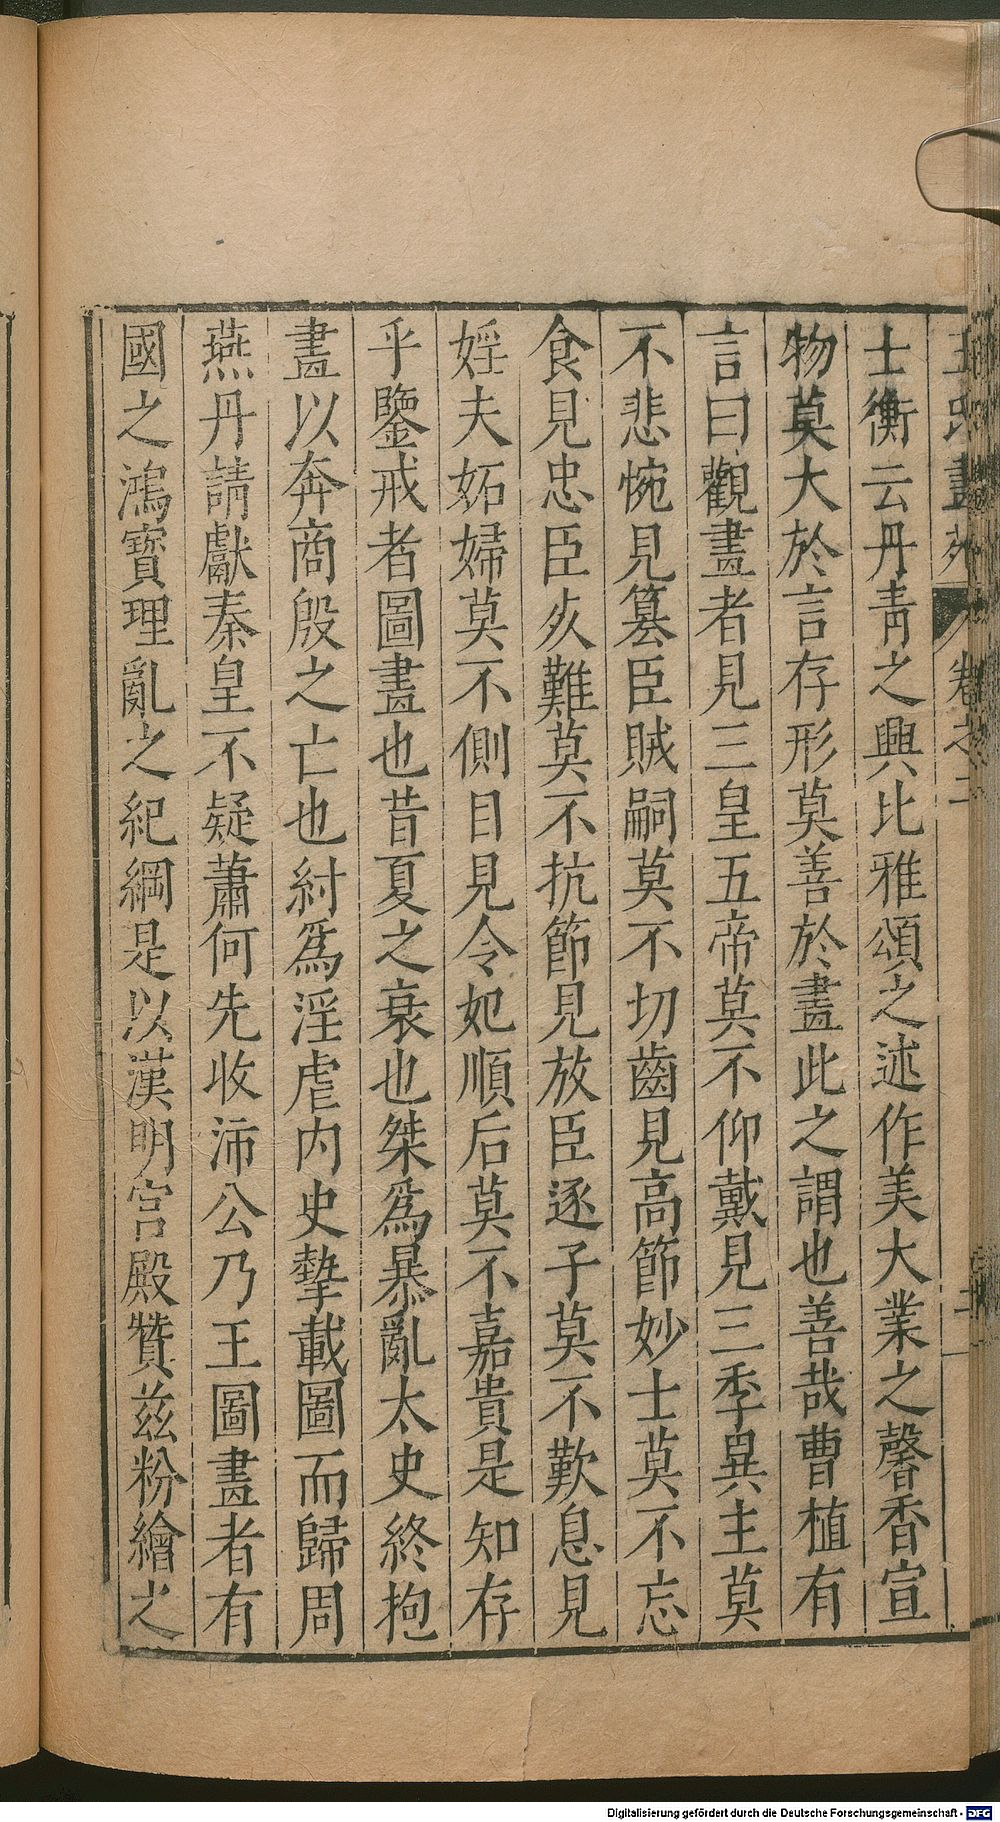 王氏畫苑 卷之二 二
士衡云丹青之興比雅頌之述作美大業之馨香宣
物莫大於言存形莫善於畫此之謂也善哉曹植有
言曰觀畫者見三皇五帝莫不仰戴見三季異主莫
不悲惋見篡臣賊嗣莫不切齒見高節妙士莫不忘
食見忠臣死難莫不抗節見放臣逐子莫不歎息見
婬夫妬婦莫不側目見令妃順后莫不嘉貴是知存
乎鑒戒者圖畫也昔夏之衰也桀爲暴亂太史終抱
畫以奔商殷之亡也紂爲淫虐内史摯載圖而歸周
燕丹請獻秦皇不疑蕭何先收沛公乃王圖畫者有
國之鴻寶理亂之紀綱是以漢明宫殿贊兹粉繪之
Digitalisierung gefördert durch die Deutsche Forschungsgemeinschaft - DFG